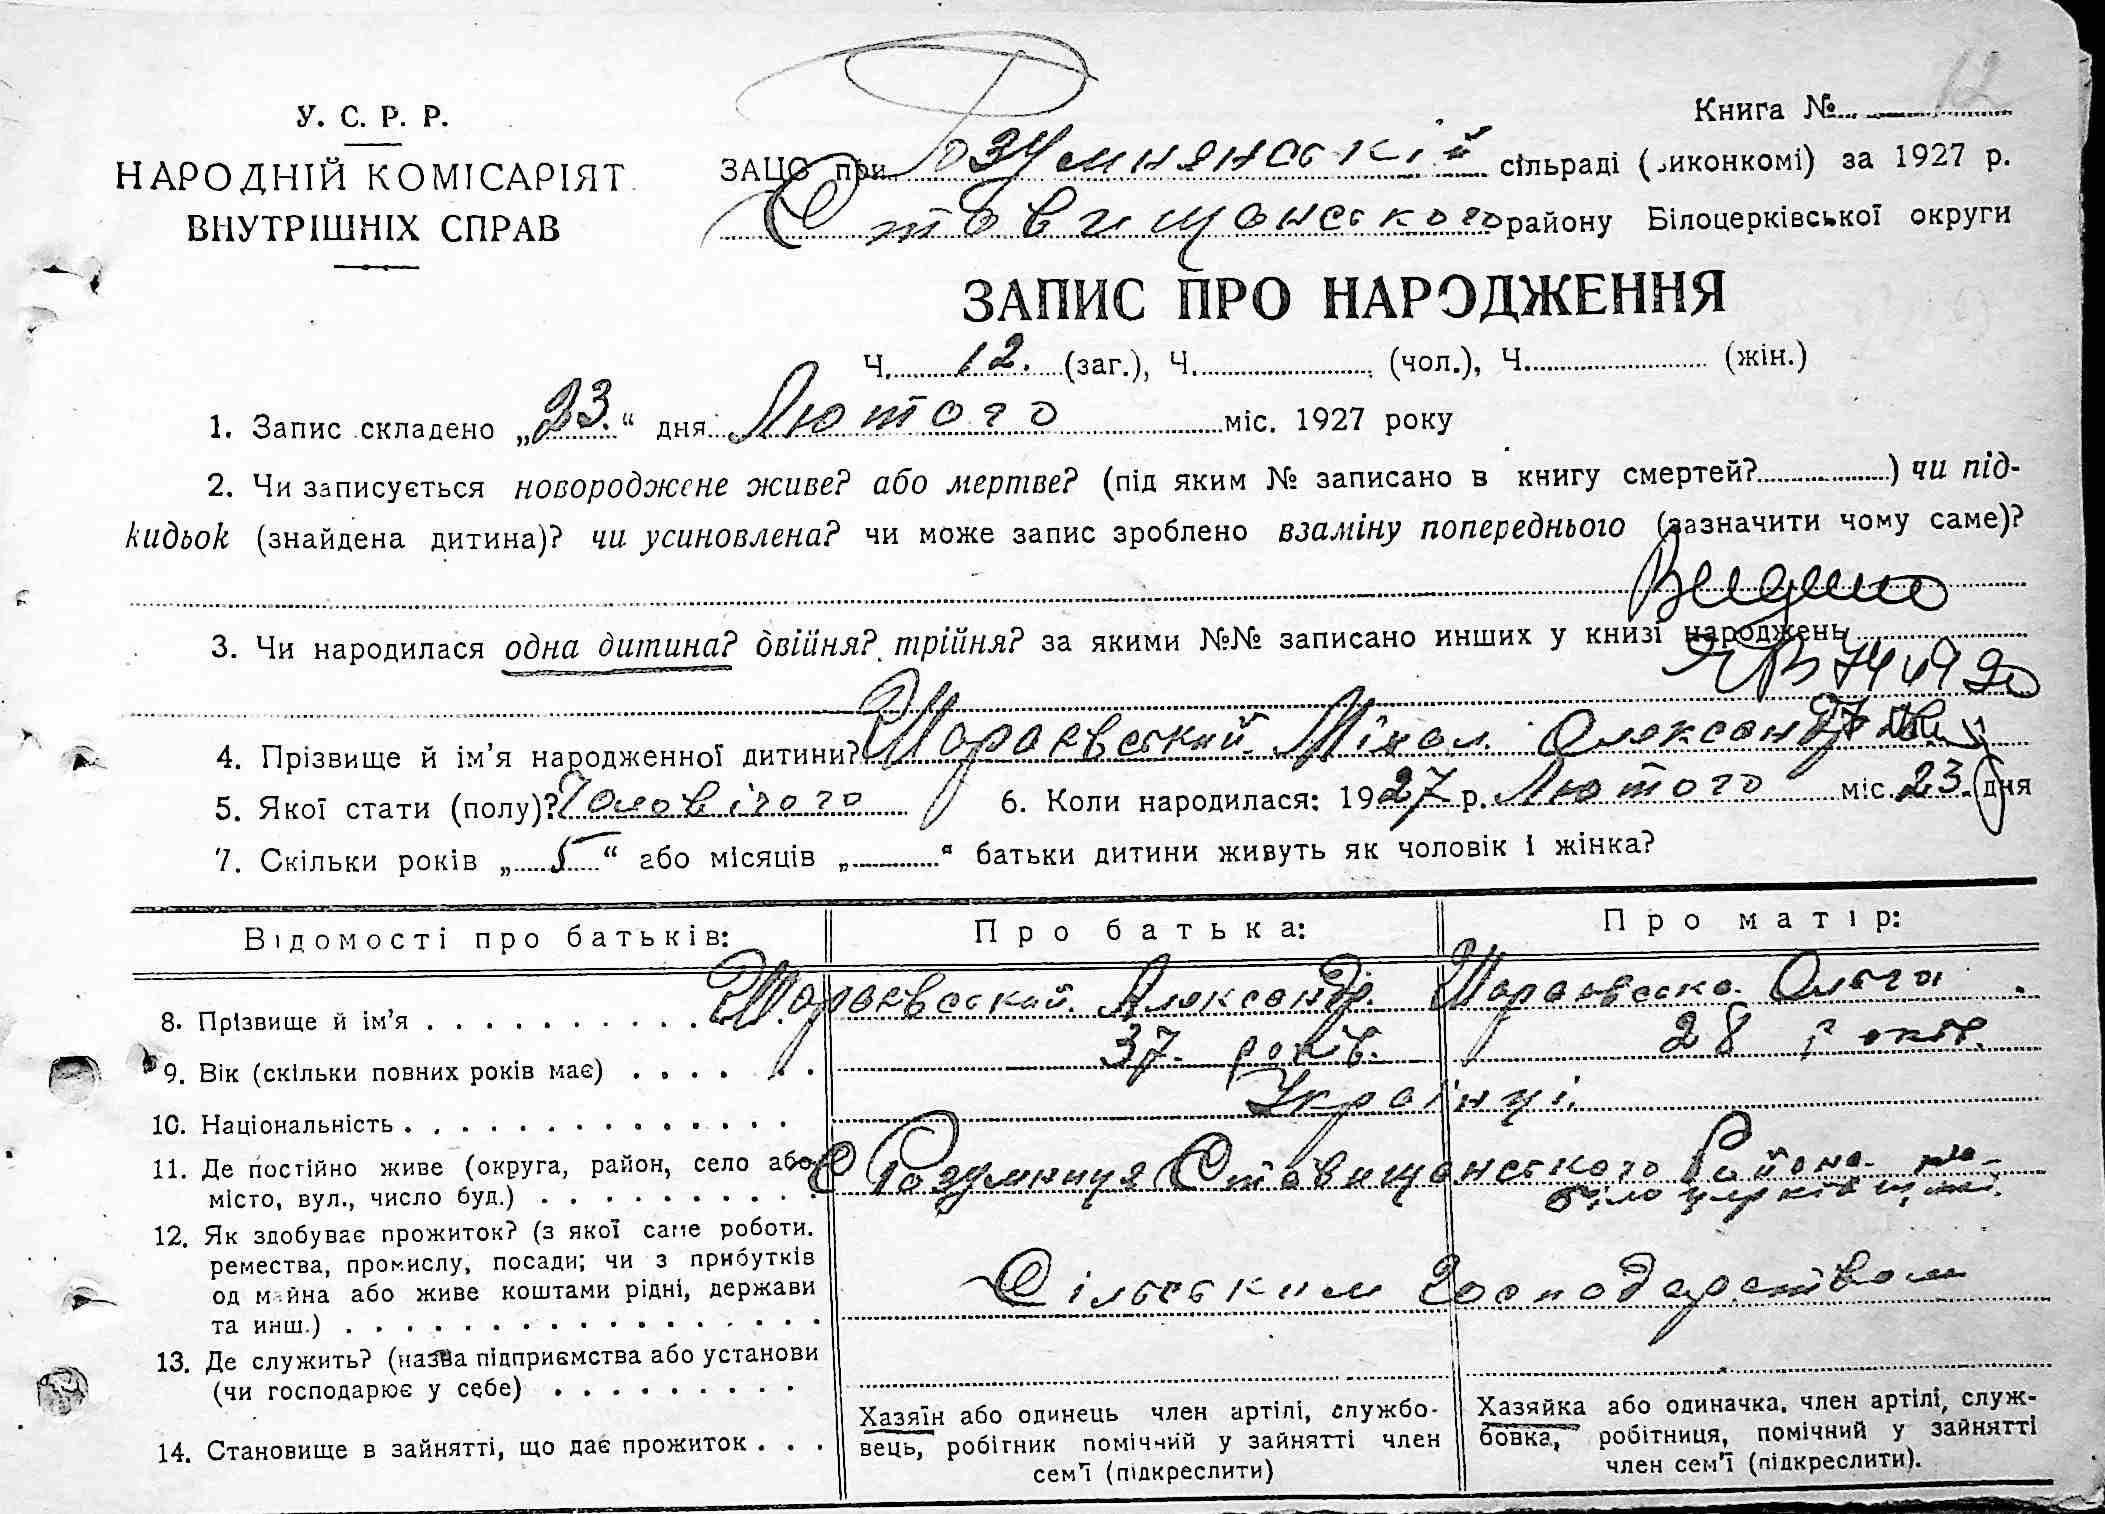 У. С. Р. Р.
НАРОДНІЙ КОМІСАРІЯТ
ВНУТРІШНІХ СПРАВ
Книга № 12
ЗАЦС при Розумнянській сільраді (виконкомі) за 1927 р.
Ставищанського району Білоцерківської округи
ЗАПИС ПРО НАРОДЖЕННЯ
Ч. 12. (заг.), Ч. (чол.), Ч. (жін.)
1. Запис складено „23.“ дня Лютого міс. 1927 року
2. Чи записується новороджене живе? або мертве? (під яким № записано в книгу смертей? ) чи під-
кидьок (знайдена дитина)? чи усиновлена? чи може запис зроблено взаміну попереднього (зазначити чому саме)?
3. Чи народилася одна дитина? двійня? трійня? за якими №№ записано инших у книзі народжень
4. Прізвище й ім’я народженної дитини? Шараєвський
5. Якої стати (полу)? Чоловічого 6. Коли народилася: 1927 р. Лютого міс. 23. дня
7. Скільки років „ 5 “ або місяців „ “ батьки дитини живуть як чоловік і жінка?
Відомості про батьків: Про батька: Про матір:
8. Прізвище й ім’я Шараєвський Александр. Шараєвська Ольга
9. Вік (скільки повних років має) 37 років. 28 років.
10. Національність Українці.
11. Де постійно живе (округа, район, село або С Розумниця Ставищанського Района
місто, вул., число буд.)
12. Як здобуває прожиток? (з якої саме роботи.
ремества, промислу, посади; чи з прибутків
од майна або живе коштами рідні, держави Сільським господарством
та инш.)
13. Де служить? (назва підприємства або установи
(чи господарює у себе)
14. Становище в зайнятті, що дає прожиток
Хазяїн або одинець член артілі, службо-
вець, робітник помічний у зайнятті член
сем’ї (підкреслити)
Хазяйка або одиначка, член артілі, служ-
бовка, робітниця, помічний у зайнятті
член сем’ї (підкреслити).